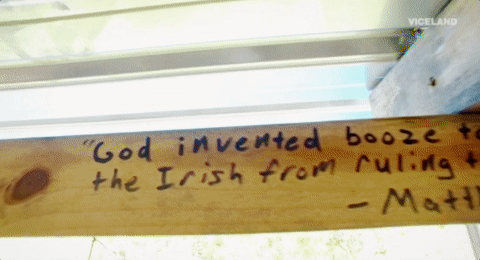 VICELAND
"God invented booze
the Irish from ruling
- Matt